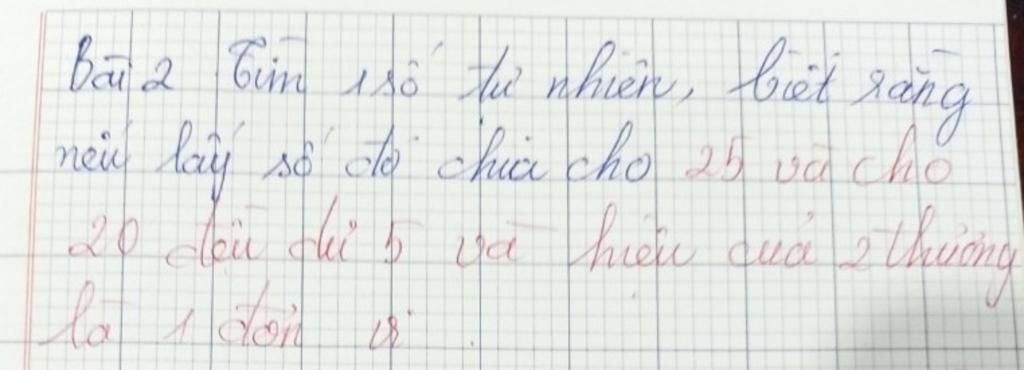 Bài 2 Tìm 1 số tự nhiên, biết rằng
nếu lấy số đó chia cho 25 và cho
20 đều dư 5 và hiệu của 2 thương
là 1 đơn vị.